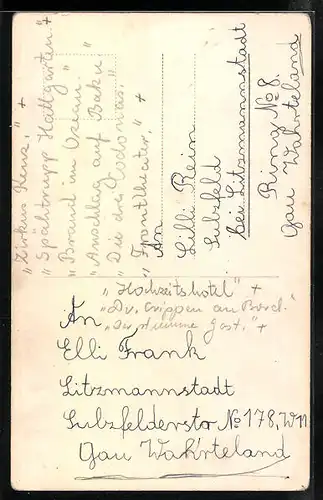 „Zirkus Renz." +
„Spähtrupp Hallgarten" +
„Brand im Ozean."
„Anschlag auf Baku."
„Die drei Codonas."
„Fronttheater." +
An
Lilli Rein
Sulzfeld
bei Litzmannstadt
Ring No 8.
Gau Wahrteland
„Hochzeitshotel" +
„Dr. Crippen an Bord."
„Der stumme Gast." +
An
Elli Frank
Litzmannstadt
Sulzfelderstr No 178, W 11
Gau Wahrteland